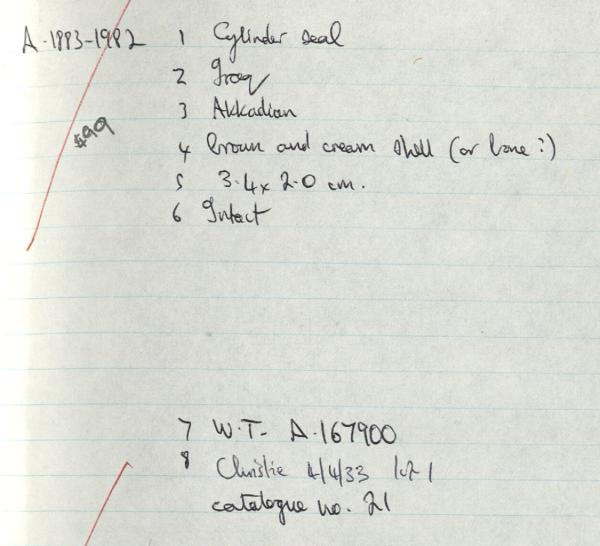 A.1983-1982 1 Cylinder seal
2 Iraq
3 Akkadian
4 brown and cream shell (or bone?)
5 3.4 x 2.0 cm.
6 Intact
7 W.T- A.167900
8 Christie 4/4/33 lot 1
catalogue no. 21